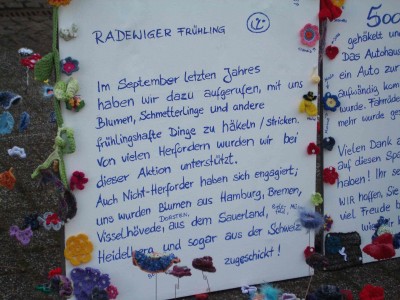 RADEWIGER FRÜHLING
Im September letzten Jahres
haben wir dazu aufgerufen, mit uns
Blumen, Schmetterlinge und andere
frühlingshafte Dinge zu häkeln / stricken.
Von vielen Herfordern wurden wir bei
dieser Aktion unterstützt.
Auch Nicht-Herforder haben sich engagiert;
uns wurden Blumen aus Hamburg, Bremen,
Visselhövede, DORSTEN, aus dem Sauerland,
Heidelberg und sogar aus der Schweiz
zugeschickt!
500
gehäkelt un
Das Autohaus
ein Auto zur
aufwändig kom
wurde. Fahrräde
mehr wurde ge
Vielen Dank a
auf diesen Spa
haben! Ihr se
WIR HOFFEN, SIE
viel Freude b